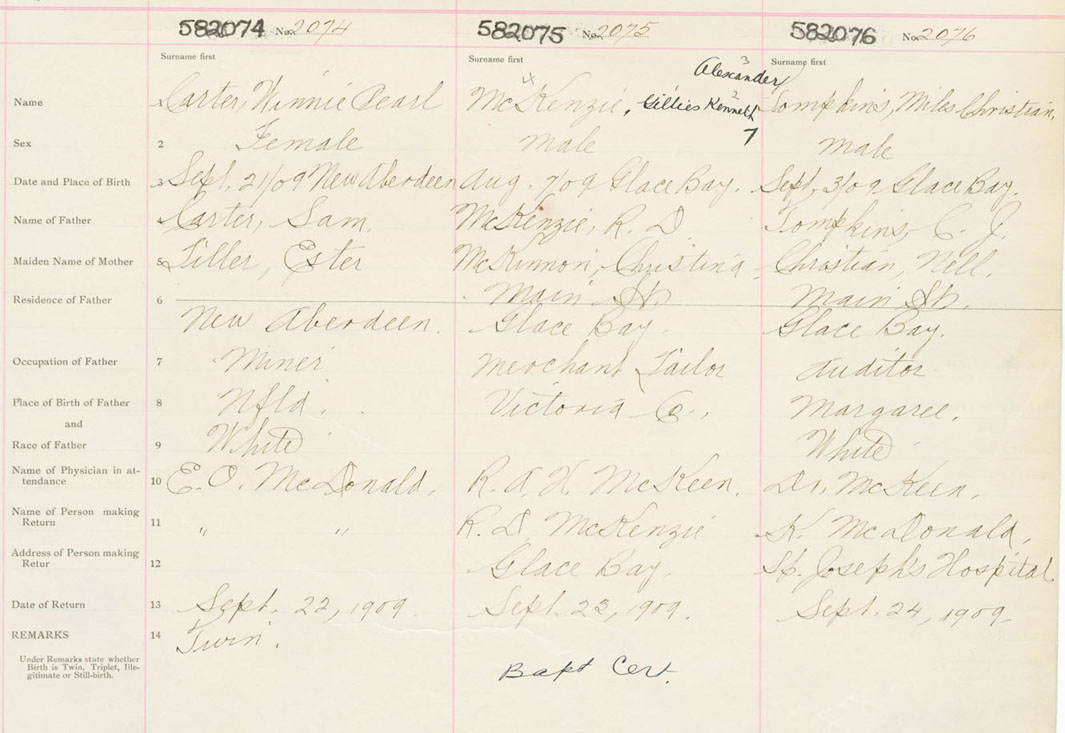 582074 No. 2074 582075 No. 2075 582076 No. 2076
Surname first Surname first Surname first
3
Alexander
4 2
Name 1 Carter, Winnie Pearl McKenzie, Gillies Kenneth Tompkins, Miles Christian,
7
Sex 2 Female Male Male
Date and Place of Birth 3 Sept. 21/09 New Aberdeen Aug. 7/09 Glace Bay. Sept. 3/09 Glace Bay.
Name of Father 4 Carter, Sam. McKenzie, R. D. Tompkins, C. J.
Maiden Name of Mother 5 Tiller, Ester McKinnon, Christina Christian, Nell.
Main St. Main St.
Residence of Father 6 New Aberdeen. Glace Bay. Glace Bay.
Occupation of Father 7 Miner Merchant Tailor Auditor
Place of Birth of Father 8 Nfld. Victoria Co., Margaree.
and
Race of Father 9 White White
Name of Physician in at-
tendance 10 E. O. McDonald. R. A. H. McKeen. Dr. McKeen.
Name of Person making
Return 11 " " R. D. McKenzie K. McDonald,
Address of Person making
Retur 12 Glace Bay. St. Joseph's Hospital
Date of Return 13 Sept. 22, 1909. Sept. 23, 1909. Sept. 24, 1909.
REMARKS 14 Twin.
Under Remarks state whether
Birth is Twin, Triplet, Ille-
gitimate or Still-birth.
Bapt Cert.